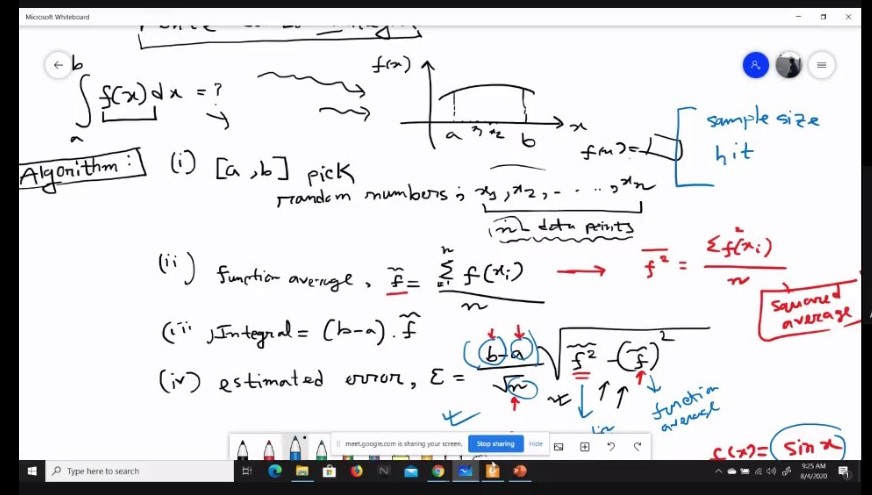 Microsoft Whiteboard
b
∫ f(x) dx = ?
a
f(x)
a x₁ x₂ b x
f(x) =
sample size
hit
Algorithm :
(i) [a, b] pick
random numbers ; x₁, x₂, - - - .., xₙ
n data points
(ii) function average, f̃ = Σ f(xᵢ) / n → f̅² = Σ f²(xᵢ) / n
i=1 n
squared
average
(iii) Integral = (b-a) . f̃
(iv) estimated error, ε = (b-a) / √n √ f̃² - (f̃)²
function
average
f(x) = sin x
meet.google.com is sharing your screen. Stop sharing Hide
Type here to search
9:25 AM
8/4/2020